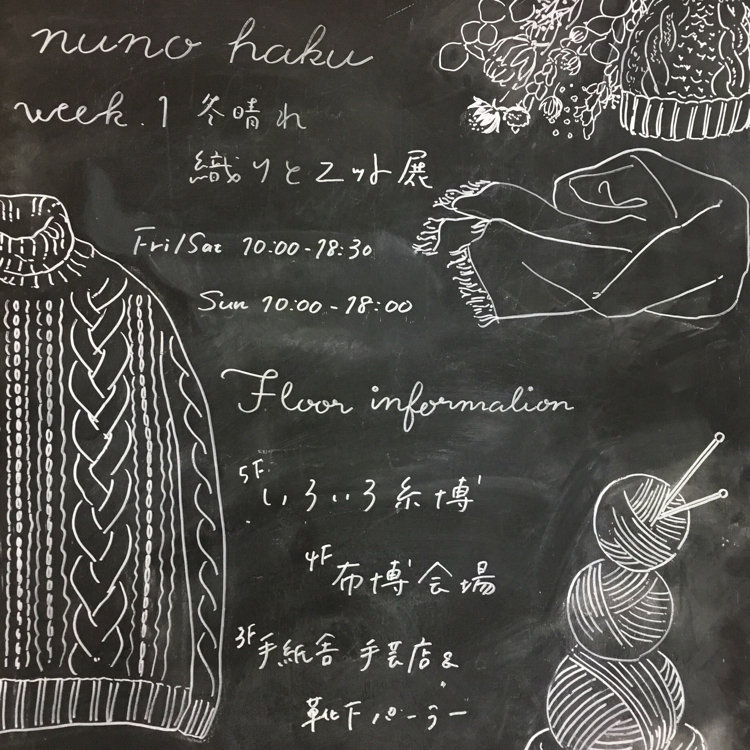 nuno haku
week.1 冬晴れ
織りとニット展
Fri/Sat 10:00-18:30
Sun 10:00-18:00
Floor information
5F いろいろ糸博
4F 布博会場
3F 手紙舎 手芸店&
靴下パーラー